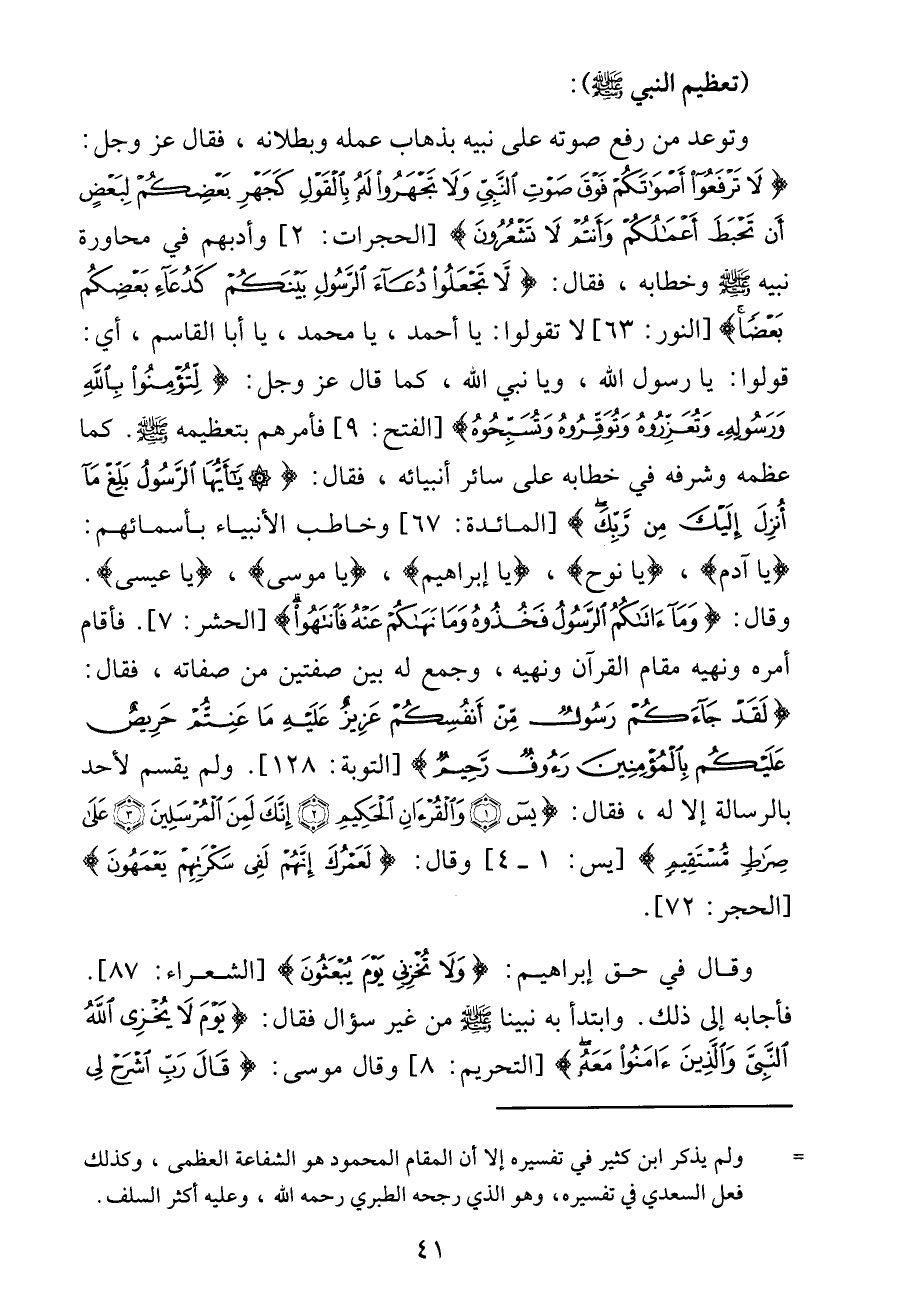 (تعظيم النبي ﷺ):
وتوعد من رفع صوته على نبيه بذهاب عمله وبطلانه ، فقال عز وجل:
﴿ لَا تَرْفَعُوٓا۟ أَصْوَٰتَكُمْ فَوْقَ صَوْتِ ٱلنَّبِىِّ وَلَا تَجْهَرُوا۟ لَهُۥ بِٱلْقَوْلِ كَجَهْرِ بَعْضِكُمْ لِبَعْضٍ
أَن تَحْبَطَ أَعْمَٰلُكُمْ وَأَنتُمْ لَا تَشْعُرُونَ ﴾ [الحجرات: ٢] وأدبهم في محاورة
نبيه ﷺ وخطابه ، فقال: ﴿ لَّا تَجْعَلُوا۟ دُعَآءَ ٱلرَّسُولِ بَيْنَكُمْ كَدُعَآءِ بَعْضِكُم
بَعْضًا ۚ﴾ [النور: ٦٣] لا تقولوا: يا أحمد ، يا محمد ، يا أبا القاسم ، أي:
قولوا: يا رسول الله ، ويا نبي الله ، كما قال عز وجل: ﴿ لِّتُؤْمِنُوا۟ بِٱللَّهِ
وَرَسُولِهِۦ وَتُعَزِّرُوهُ وَتُوَقِّرُوهُ وَتُسَبِّحُوهُ﴾ [الفتح: ٩] فأمرهم بتعظيمه ﷺ. كما
عظمه وشرفه في خطابه على سائر أنبيائه ، فقال: ﴿ ۞ يَٰٓأَيُّهَا ٱلرَّسُولُ بَلِّغْ مَآ
أُنزِلَ إِلَيْكَ مِن رَّبِّكَ ۖ ﴾ [المائدة: ٦٧] وخاطب الأنبياء بأسمائهم:
﴿يا آدم﴾ ، ﴿يا نوح﴾ ، ﴿يا إبراهيم﴾ ، ﴿يا موسى﴾ ، ﴿يا عيسى﴾.
وقال: ﴿ وَمَآ ءَاتَىٰكُمُ ٱلرَّسُولُ فَخُذُوهُ وَمَا نَهَىٰكُمْ عَنْهُ فَٱنتَهُوا۟ ۚ﴾ [الحشر: ٧]. فأقام
أمره ونهيه مقام القرآن ونهيه ، وجمع له بين صفتين من صفاته ، فقال:
﴿ لَقَدْ جَآءَكُمْ رَسُولٌ مِّنْ أَنفُسِكُمْ عَزِيزٌ عَلَيْهِ مَا عَنِتُّمْ حَرِيصٌ
عَلَيْكُم بِٱلْمُؤْمِنِينَ رَءُوفٌ رَّحِيمٌ ﴾ [التوبة: ١٢٨]. ولم يقسم لأحد
بالرسالة إلا له ، فقال: ﴿ يسٓ ١ وَٱلْقُرْءَانِ ٱلْحَكِيمِ ٢ إِنَّكَ لَمِنَ ٱلْمُرْسَلِينَ ٣ عَلَىٰ
صِرَٰطٍ مُّسْتَقِيمٍ ﴾ [يس: ١ ـ ٤] وقال: ﴿ لَعَمْرُكَ إِنَّهُمْ لَفِى سَكْرَتِهِمْ يَعْمَهُونَ ﴾
[الحجر: ٧٢].
وقال في حق إبراهيم: ﴿ وَلَا تُخْزِنِى يَوْمَ يُبْعَثُونَ ﴾ [الشعراء: ٨٧].
فأجابه إلى ذلك. وابتدأ به نبينا ﷺ من غير سؤال فقال: ﴿ يَوْمَ لَا يُخْزِى ٱللَّهُ
ٱلنَّبِىَّ وَٱلَّذِينَ ءَامَنُوا۟ مَعَهُۥ ۖ ﴾ [التحريم: ٨] وقال موسى: ﴿ قَالَ رَبِّ ٱشْرَحْ لِى
= ولم يذكر ابن كثير في تفسيره إلا أن المقام المحمود هو الشفاعة العظمى ، وكذلك
فعل السعدي في تفسيره، وهو الذي رجحه الطبري رحمه الله ، وعليه أكثر السلف.
٤١